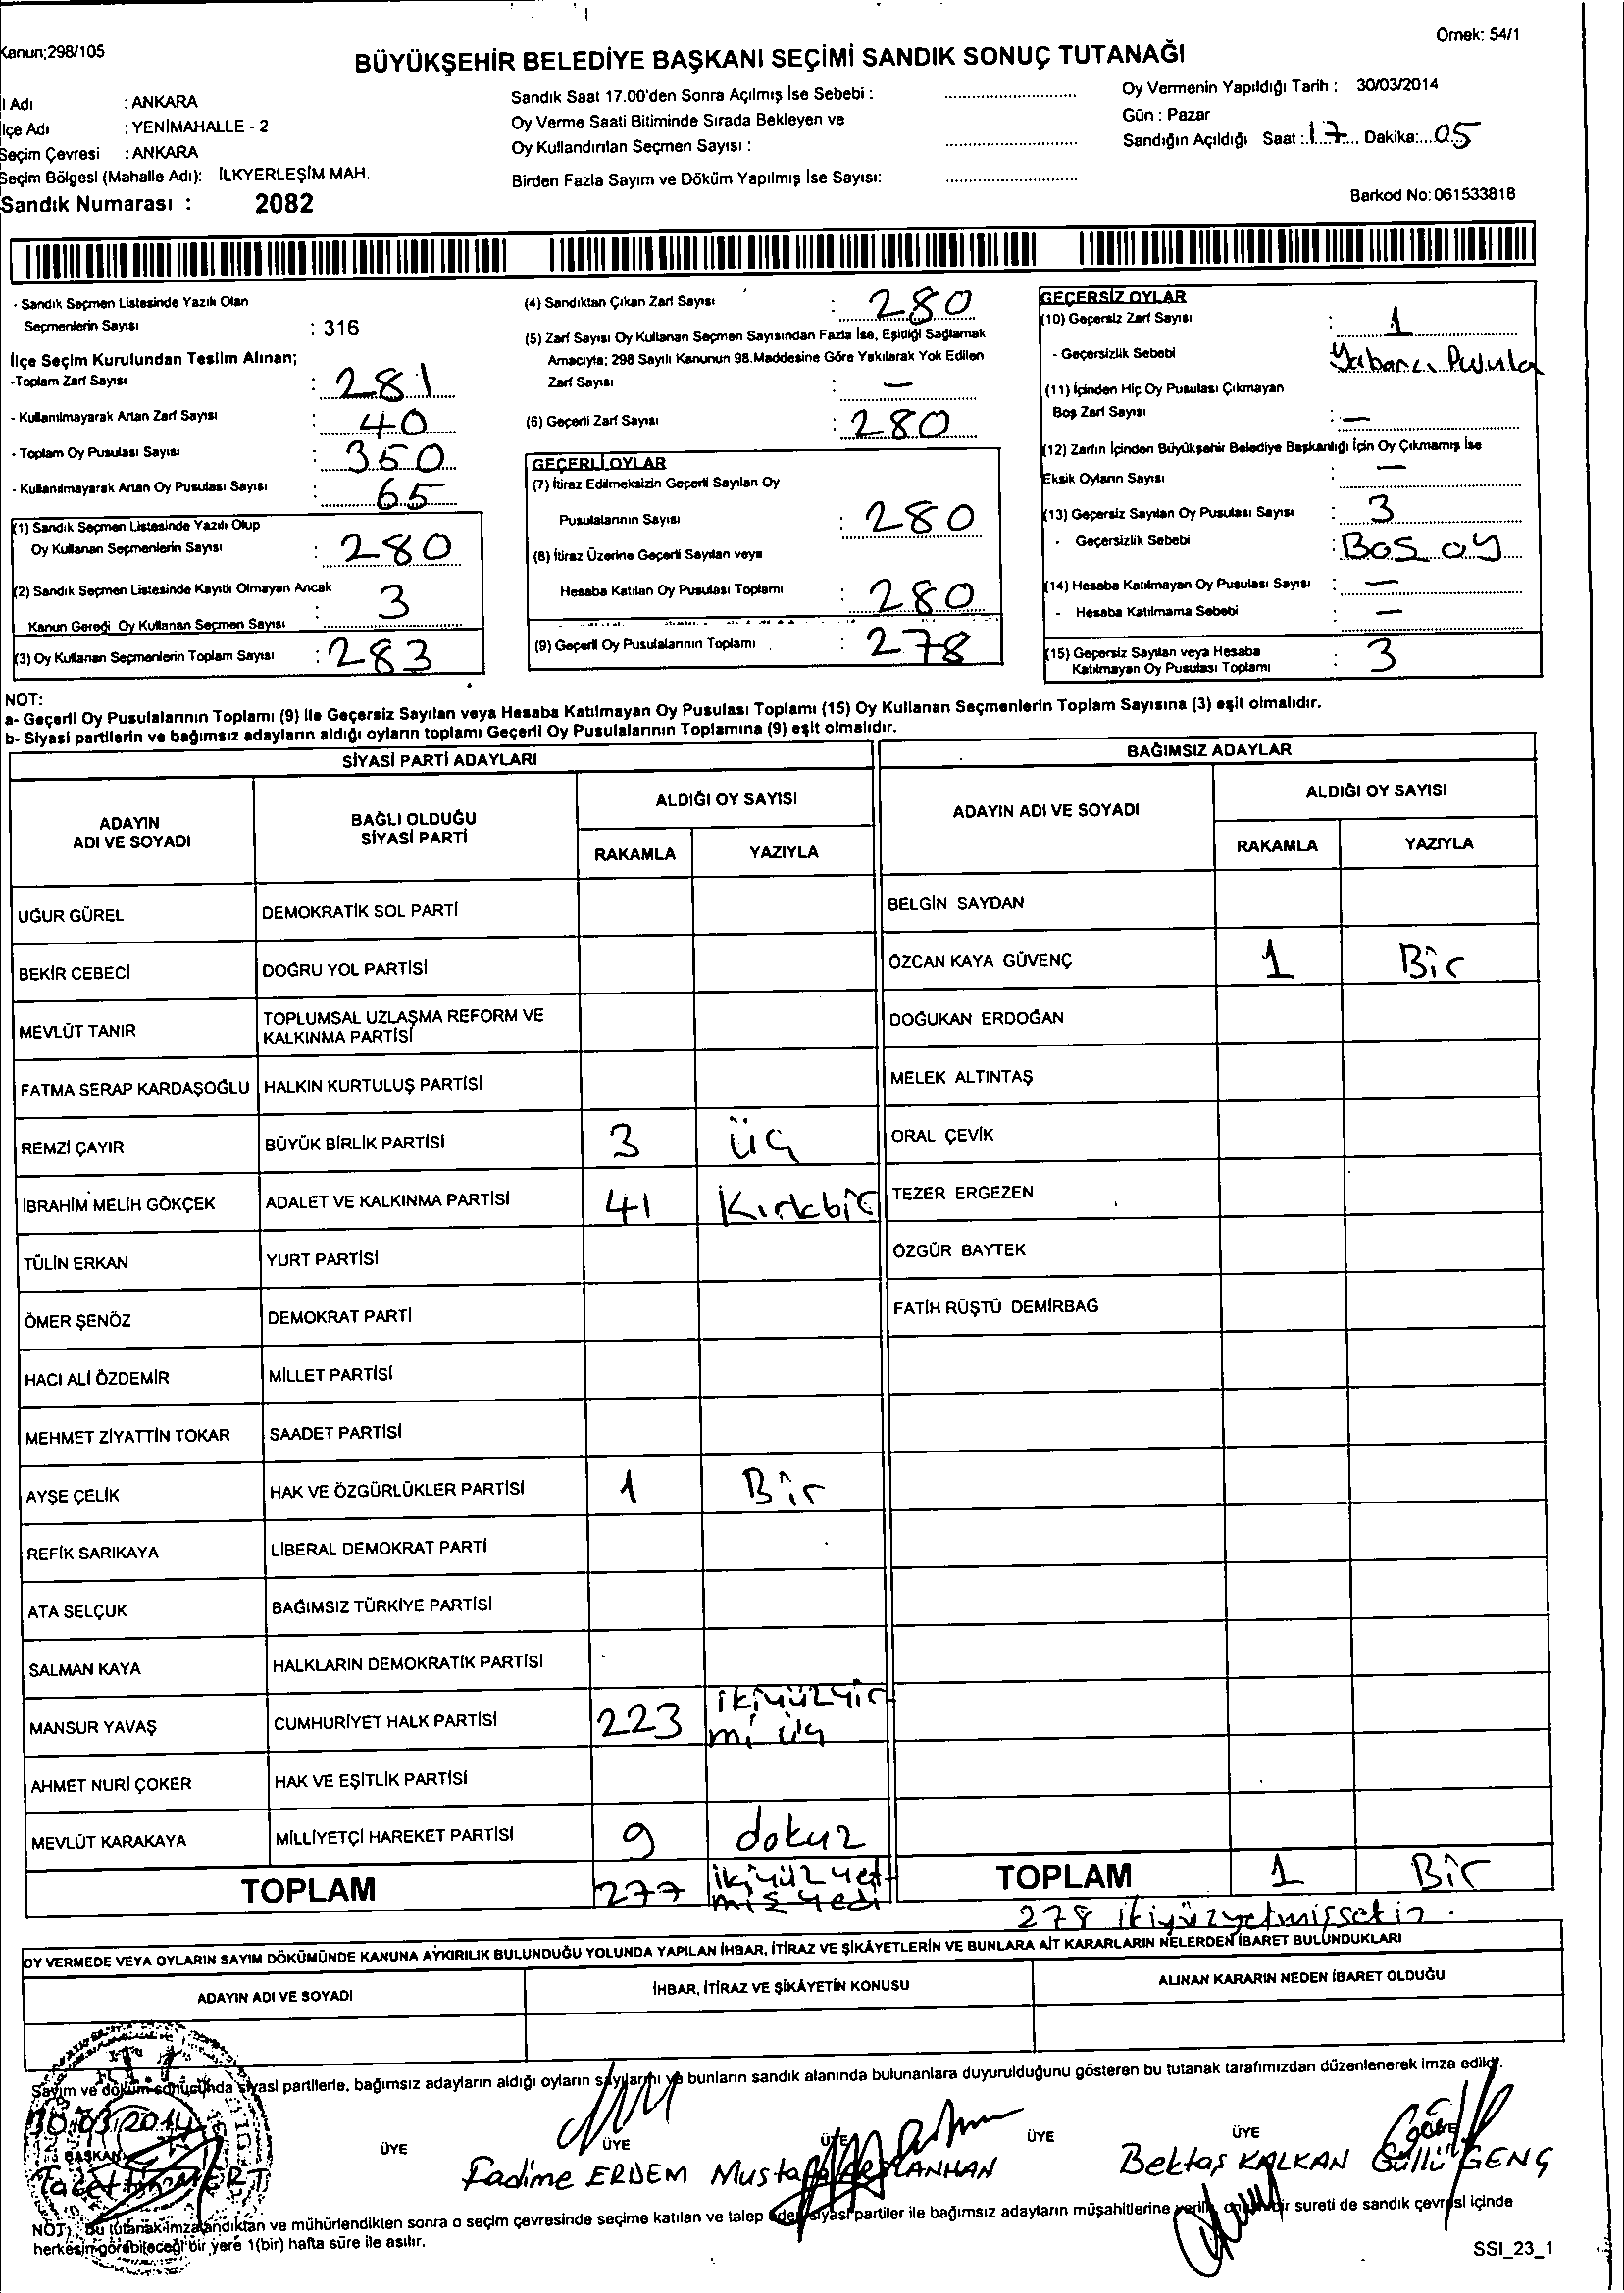 Kanun;298/105
Örnek: 54/1
BÜYÜKŞEHİR BELEDİYE BAŞKANI SEÇİMİ SANDIK SONUÇ TUTANAĞI
l Adı : ANKARA
lçe Adı : YENİMAHALLE - 2
Seçim Çevresi : ANKARA
Seçim Bölgesi (Mahalle Adı): İLKYERLEŞİM MAH.
Sandık Numarası : 2082
Sandık Saat 17.00'den Sonra Açılmış İse Sebebi :
Oy Verme Saati Bitiminde Sırada Bekleyen ve
Oy Kullandırılan Seçmen Sayısı :
Birden Fazla Sayım ve Döküm Yapılmış İse Sayısı:
Oy Vermenin Yapıldığı Tarih : 30/03/2014
Gün : Pazar
Sandığın Açıldığı Saat : 17 Dakika: 05
Barkod No: 061533818
- Sandık Seçmen Listesinde Yazılı Olan
Seçmenlerin Sayısı : 316
İlçe Seçim Kurulundan Teslim Alınan;
-Toplam Zarf Sayısı : 281
- Kullanılmayarak Artan Zarf Sayısı : 40
- Toplam Oy Pusulası Sayısı : 350
- Kullanılmayarak Artan Oy Pusulası Sayısı : 65
(1) Sandık Seçmen Listesinde Yazılı Olup
Oy Kullanan Seçmenlerin Sayısı : 280
(2) Sandık Seçmen Listesinde Kayıtlı Olmayan Ancak
Kanun Gereği Oy Kullanan Seçmen Sayısı : 3
(3) Oy Kullanan Seçmenlerin Toplam Sayısı : 283
(4) Sandıktan Çıkan Zarf Sayısı : 280
(5) Zarf Sayısı Oy Kullanan Seçmen Sayısından Fazla İse, Eşitliği Sağlamak
Amacıyla; 298 Sayılı Kanunun 98.Maddesine Göre Yakılarak Yok Edilen
Zarf Sayısı : —
(6) Geçerli Zarf Sayısı : 280
GEÇERLİ OYLAR
(7) İtiraz Edilmeksizin Geçerli Sayılan Oy
Pusulalarının Sayısı : 280
(8) İtiraz Üzerine Geçerli Sayılan veya
Hesaba Katılan Oy Pusulası Toplamı : 280
(9) Geçerli Oy Pusulalarının Toplamı : 278
GEÇERSİZ OYLAR
(10) Geçersiz Zarf Sayısı : 1
- Geçersizlik Sebebi Yabancı Pusula
(11) İçinden Hiç Oy Pusulası Çıkmayan
Boş Zarf Sayısı : —
(12) Zarfın İçinden Büyükşehir Belediye Başkanlığı İçin Oy Çıkmamış İse
Eksik Oyların Sayısı : —
(13) Geçersiz Sayılan Oy Pusulası Sayısı : 3
- Geçersizlik Sebebi : Bos oy
(14) Hesaba Katılmayan Oy Pusulası Sayısı : —
- Hesaba Katılmama Sebebi : —
(15) Geçersiz Sayılan veya Hesaba
Katılmayan Oy Pusulası Toplamı : 3
NOT:
a- Geçerli Oy Pusulalarının Toplamı (9) ile Geçersiz Sayılan veya Hesaba Katılmayan Oy Pusulası Toplamı (15) Oy Kullanan Seçmenlerin Toplam Sayısına (3) eşit olmalıdır.
b- Siyasi partilerin ve bağımsız adayların aldığı oyların toplamı Geçerli Oy Pusulalarının Toplamına (9) eşit olmalıdır.
SİYASİ PARTİ ADAYLARI
BAĞIMSIZ ADAYLAR
ADAYIN
ADI VE SOYADI
BAĞLI OLDUĞU
SİYASİ PARTİ
ALDIĞI OY SAYISI
RAKAMLA YAZIYLA
ADAYIN ADI VE SOYADI
ALDIĞI OY SAYISI
RAKAMLA YAZIYLA
UĞUR GÜREL DEMOKRATİK SOL PARTİ BELGİN SAYDAN
BEKİR CEBECİ DOĞRU YOL PARTİSİ ÖZCAN KAYA GÜVENÇ 1 Bir
MEVLÜT TANIR TOPLUMSAL UZLAŞMA REFORM VE
KALKINMA PARTİSİ DOĞUKAN ERDOĞAN
FATMA SERAP KARDAŞOĞLU HALKIN KURTULUŞ PARTİSİ MELEK ALTINTAŞ
REMZİ ÇAYIR BÜYÜK BİRLİK PARTİSİ 3 üç ORAL ÇEVİK
İBRAHİM MELİH GÖKÇEK ADALET VE KALKINMA PARTİSİ 41 Kırkbir TEZER ERGEZEN
TÜLİN ERKAN YURT PARTİSİ ÖZGÜR BAYTEK
ÖMER ŞENÖZ DEMOKRAT PARTİ FATİH RÜŞTÜ DEMİRBAĞ
HACI ALİ ÖZDEMİR MİLLET PARTİSİ
MEHMET ZİYATTİN TOKAR SAADET PARTİSİ
AYŞE ÇELİK HAK VE ÖZGÜRLÜKLER PARTİSİ 1 Bir
REFİK SARIKAYA LİBERAL DEMOKRAT PARTİ
ATA SELÇUK BAĞIMSIZ TÜRKİYE PARTİSİ
SALMAN KAYA HALKLARIN DEMOKRATİK PARTİSİ
MANSUR YAVAŞ CUMHURİYET HALK PARTİSİ 223 ikiyüzyir
mi üç
AHMET NURİ ÇOKER HAK VE EŞİTLİK PARTİSİ
MEVLÜT KARAKAYA MİLLİYETÇİ HAREKET PARTİSİ 9 dokuz
TOPLAM 277 ikiyüzyet
miş yedi TOPLAM 1 Bir
278 ikiyüzyetmişsekiz.
OY VERMEDE VEYA OYLARIN SAYIM DÖKÜMÜNDE KANUNA AYKIRILIK BULUNDUĞU YOLUNDA YAPILAN İHBAR, İTİRAZ VE ŞİKÂYETLERİN VE BUNLARA AİT KARARLARIN NELERDEN İBARET BULUNDUKLARI
ADAYIN ADI VE SOYADI İHBAR, İTİRAZ VE ŞİKÂYETİN KONUSU ALINAN KARARIN NEDEN İBARET OLDUĞU
Sayım ve döküm sonucunda siyasi partilerle, bağımsız adayların aldığı oyların sayılarını ve bunların sandık alanında bulunanlara duyurulduğunu gösteren bu tutanak tarafımızdan düzenlenerek imza edildi.
30.03.2014
BAŞKAN ÜYE ÜYE ÜYE ÜYE ÜYE
Fadime ERDEM Mustafa Bektaş KALKAN Güllü GENÇ
NOT: Bu tutanak imzalandıktan ve mühürlendikten sonra o seçim çevresinde seçime katılan ve talep eden siyasi partiler ile bağımsız adayların müşahitlerine verilir, bir sureti de sandık çevresi içinde
herkesin görebileceği bir yere 1(bir) hafta süre ile asılır.
SSI_23_1